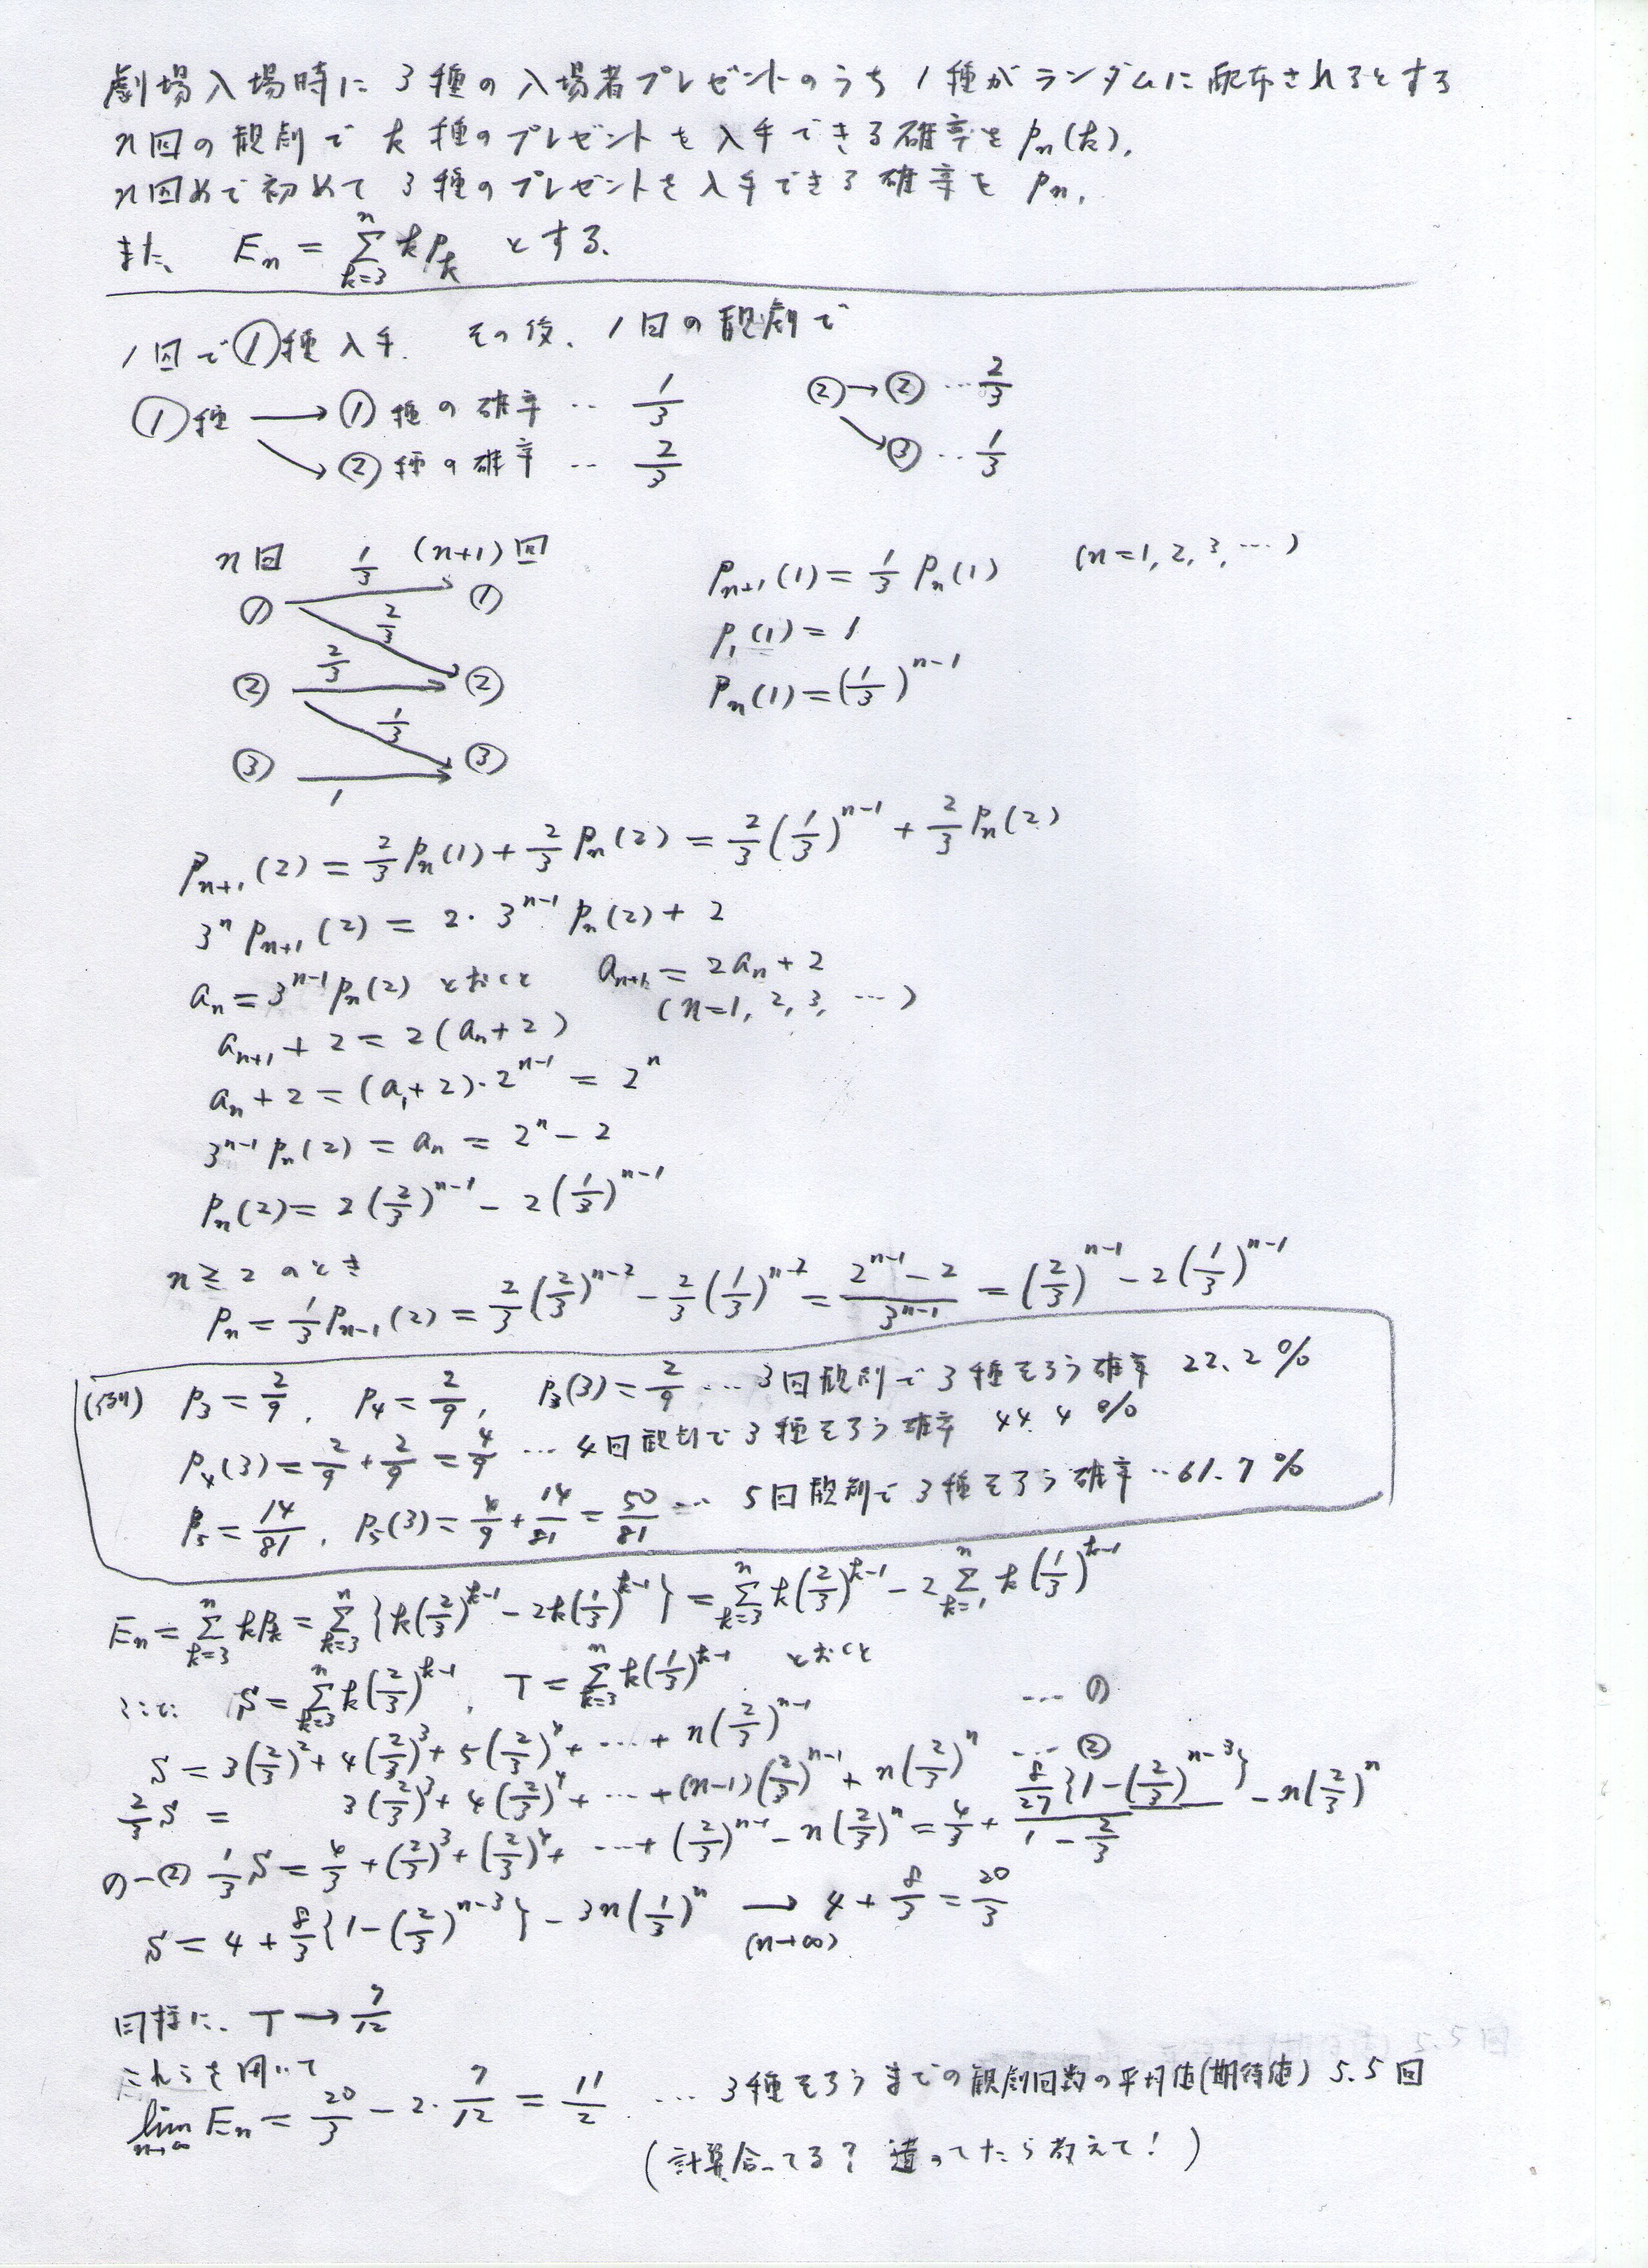 劇場入場時に 3種の入場者プレゼントのうち 1種がランダムに配布されるとする
n回の観劇で k種のプレゼントを入手できる確率を pn(k),
n回めで初めて 3種のプレゼントを入手できる確率を pn,
また、 En = Σ[k=3→n] k pk とする。
1回で①種入手. その後、1回の観劇で
①種 → ①種の確率 ‥ 1/3 ②→② … 2/3
↘ ②種の確率 ‥ 2/3 ↘③ … 1/3
n回 1/3 (n+1)回
① → ①
2/3
2/3
② → ②
1/3
③ → ③
1
pn+1(1) = 1/3 pn(1) (n=1, 2, 3, …)
p1(1) = 1
pn(1) = (1/3)^(n-1)
pn+1(2) = 2/3 pn(1) + 2/3 pn(2) = 2/3 (1/3)^(n-1) + 2/3 pn(2)
3^n pn+1(2) = 2・3^(n-1) pn(2) + 2
an = 3^(n-1) pn(2) とおくと an+1 = 2an + 2
(n=1, 2, 3, …)
an+1 + 2 = 2(an + 2)
an + 2 = (a1 + 2)・2^(n-1) = 2^n
3^(n-1) pn(2) = an = 2^n − 2
pn(2) = 2(2/3)^(n-1) − 2(1/3)^(n-1)
n ≧ 2 のとき
pn = 1/3 pn-1(2) = 2/3 (2/3)^(n-2) − 2/3 (1/3)^(n-2) = (2^(n-1) − 2)/3^(n-1) = (2/3)^(n-1) − 2(1/3)^(n-1)
(例) p3 = 2/9, p4 = 2/9, p3(3) = 2/9 … 3回観劇で3種そろう確率 22.2%
p4(3) = 2/9 + 2/9 = 4/9 … 4回観劇で3種そろう確率 44.4%
p5 = 14/81, p5(3) = 4/9 + 14/81 = 50/81 … 5回観劇で3種そろう確率 ‥61.7%
En = Σ[k=3→n] k pk = Σ[k=3→n] {k(2/3)^(k-1) − 2k(1/3)^(k-1)} = Σ[k=3→n] k(2/3)^(k-1) − 2 Σ[k=1→n] k(1/3)^(k-1)
ここで S = Σ[k=3→n] k(2/3)^(k-1), T = Σ[k=3→n] k(1/3)^(k-1) とおくと
S = 3(2/3)^2 + 4(2/3)^3 + 5(2/3)^4 + … + n(2/3)^(n-1) … ①
2/3 S = 3(2/3)^3 + 4(2/3)^4 + … + (n-1)(2/3)^(n-1) + n(2/3)^n … ②
①−② 1/3 S = 4/3 + (2/3)^3 + (2/3)^4 + … + (2/3)^(n-1) − n(2/3)^n = 4/3 + (8/27{1−(2/3)^(n-3)})/(1 − 2/3) − n(2/3)^n
S = 4 + 8/3{1−(2/3)^(n-3)} − 3n(1/3)^n → (n→∞) 4 + 8/3 = 20/3
同様に、T → 7/12
これらを用いて
lim[n→∞] En = 20/3 − 2・7/12 = 11/2 … 3種そろうまでの観劇回数の平均値(期待値) 5.5回
(計算合ってる? 違ってたら教えて!)